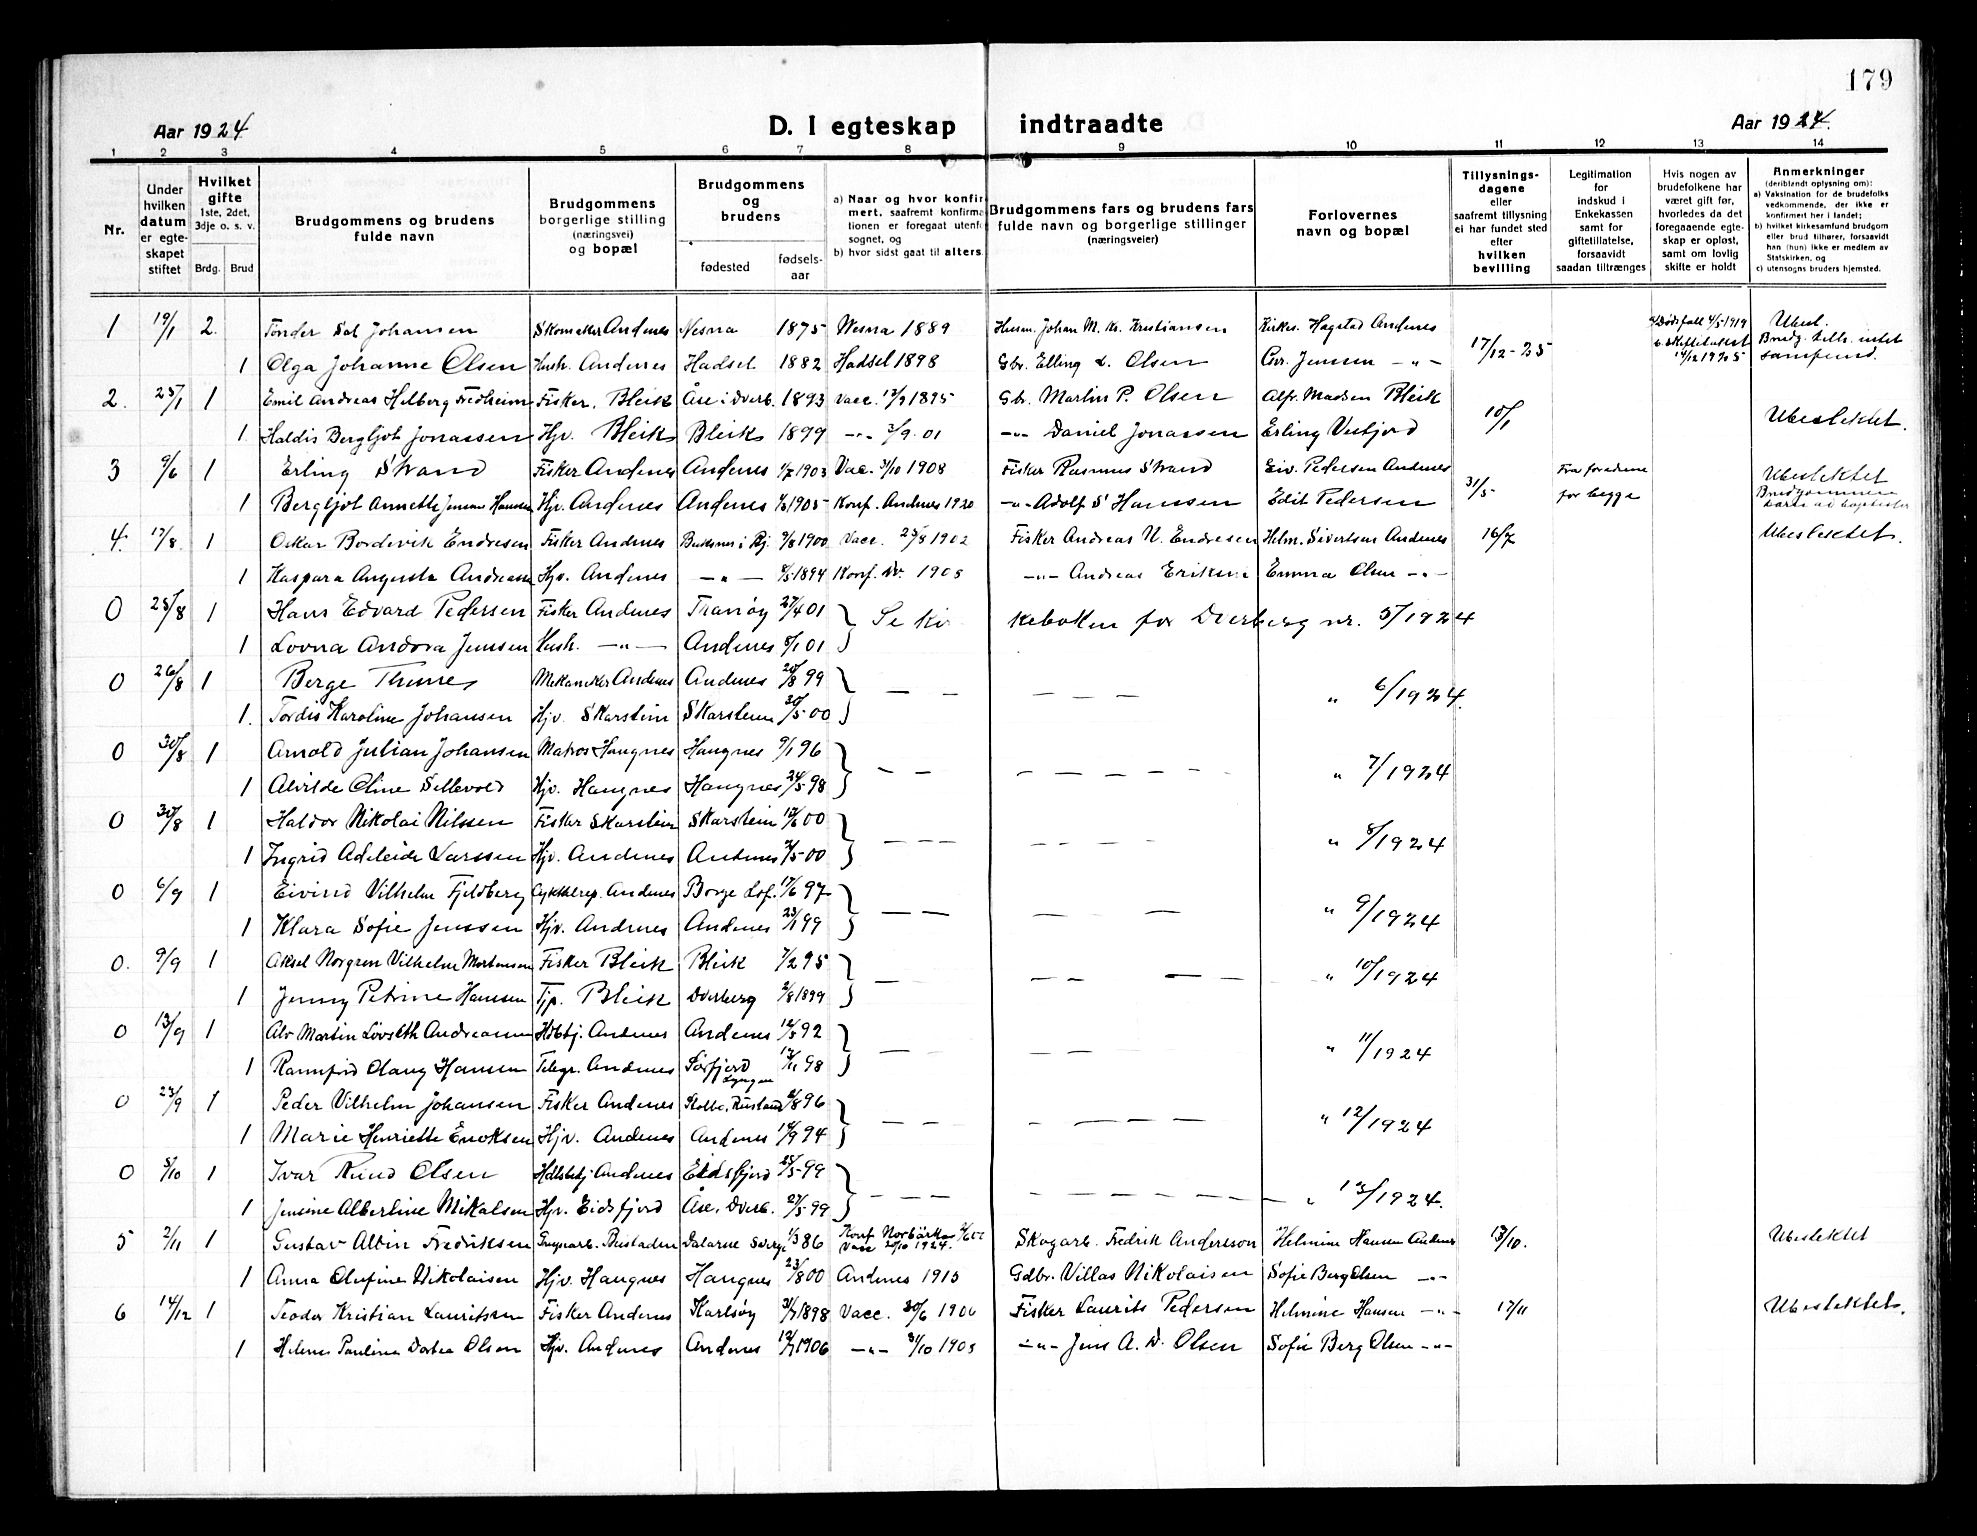 179
Aar 1924
D. I egteskap indtraadte
Aar 1924.
1 2 3 4 5 6 7 8 9 10 11 12 13 14
Nr.
Under hvilken datum er egteskapet stiftet
Hvilket gifte 1ste, 2det, 3dje o. s. v.
Brdg. Brud
Brudgommens og brudens fulde navn
Brudgommens borgerlige stilling (næringsvei) og bopæl
Brudgommens og brudens
fødested
fødselsaar
a) Naar og hvor konfirmert, saafremt konfirmationen er foregaat utenfor sognet, og
b) hvor sidst gaat til alters.
Brudgommens fars og brudens fars fulde navn og borgerlige stillinger (næringsveier)
Forlovernes navn og bopæl
Tillysningsdagene eller saafremt tillysning ei har fundet sted efter hvilken bevilling
Legitimation for indskud i Enkekassen samt for giftetillatelse, forsaavidt saadan tiltrænges
Hvis nogen av brudefolkene har været gift før, hvorledes da det foregaaende egteskap er opløst, samt om lovlig skifte er holdt
Anmerkninger (deriblandt oplysning om):
a) Vaksination for de brudefolks vedkommende, der ikke er konfirmert her i landet;
b) hvilket kirkesamfund brudgom eller brud tilhører, forsaavidt han (hun) ikke er medlem av Statskirken, og
c) utensogns bruders hjemsted.
1 19/1 2. Tönder Sal Johansen Skomaker Andenes Nesna 1875 Nesna 1889 Husm. Johan M. Kr. Kristiansen Kirkes. Hagstad Andenes 17/12-25 Dødsfall 4/5 1919 Ubesl.
1 Olga Johanne Olsen Hush. Andenes Hadsel 1882 Hadsel 1898 Gbr. Elling L. Olsen Jensen -"- samfund.
2. 23/1 1 Emil Andreas Helberg Fredheim Fisker. Bleik Åse i Dverb. 1893 Vacc. 13/9 1895 Gbr. Martin P. Olsen Alfr. Madsen Bleik 10/1 Ubeslektet.
1 Haldis Bergljot Jonassen Hjv. Bleik Bleik 1899 -"- 3/9 01 -"- Daniel Jonassen Erling Vestfjord
3 9/6 1 Erling Strand Fisker Andenes Andenes 1/7 1903 Vacc. 31/10 1908 Fisker Rasmus Strand Eiv. Pedersen Andenes 31/5 for begge Ubeslektet
1 Bergljot Annette Jensine Hansen Hjv. Andenes Andenes 1905 Konf. Andenes 1920 -"- Adolf S. Hansen Edit Pedersen Brudgommen
4. 17/8 1 Oskar Bordevik Endresen Fisker Andenes 9/8 1900 Vacc. 25/8 1902 Fisker Andreas N. Endresen Helm. Sivertsen Andenes 16/7 Ubeslektet.
1 Kaspara Augusta Andreassen Hjv. Andenes -"- 1894 Konf. Dv. 1908 -"- Andreas Eriksen Emma Olsen -"-
0 28/8 1 Hans Edvard Pedersen Fisker Andenes Tranöy 27/4 01 Se kirkeboken for Dverberg nr. 5/1924
1 Lovna Andora Jensen Hush. -"- Andenes 5/1 01
0 26/8 1 Berge Thunes Mekaniker Andenes Andenes 20/8 99 — — — — — " 6/1924.
1. Tordis Karoline Johansen Hjv. Skarstein Skarstein 30/5 00
0 30/8 1 Arnold Julian Johansen Matros Haugnes Haugnes 9/1 96 — — — — — " 7/1924
1 Alvilde Oline Sellevold Hjv. Haugnes Haugnes 24/5 98
0 30/8 1 Haldor Nikolai Nilssen Fisker Skarstein Skarstein 17/6 00 — — — — — " 8/1924
1 Ingrid Adeleide Larssen Hjv. Andenes Andenes 5 00
0 6/9 1 Eivind Vilhelm Fjeldberg Cykkelrep. Andenes Borge Lof. 17/6 97 — — — — " 9/1924
1 Klara Sofie Jenssen Hjv. Andenes Andenes 23/1 99
0. 9/9 1 Aksel Norgren Vilhelm Mortensen Fisker Bleik Bleik 7/2 95 — — — — — " 10/1924
1 Jenny Petrine Hansen Tjp. Bleik Dverberg 2/8 1899
0 13/9 1 Alv Martin Lövseth Andreassen Hdbtj. Andenes Andenes 12/5 92 — — — — " 11/1924
1 Ramfrid Olaug Hansen Telegr. Andenes Sörfjord Lyngen 17/11 98
0 23/9 1 Peder Vilhelm Johansen Fisker Andenes Kolbe, Rusland 8 96 — — — — — — " 12/1924
1 Marie Henriette Enoksen Hjv. Andenes Andenes 14/9 94
0 5/10 1 Ivar Knud Olsen Hdlsbtj Andenes Eidsfjord 25/5 99 — — — — — — " 13/1924.
1 Jensine Albertine Mikalsen Hjv. Eidsfjord Åse, Dverb. 27/5 99
5 2/11 1 Gustav Albin Fredriksen Grupearb. Bustaden Dalarne Sverge 1/3 86 Konf Norbärke Vacc 20/10 1924. Skogarb. Fredrik Andersson Helmine Hansen Andenes 13/10. Ubeslektet
1 Anna Olufine Nikolaisen Hjv. Haugnes Haugnes 23/8 00 Andenes 1915 Gdbr. Villas Nikolaisen Sofie Berg Olsen -"-
6 14/12 1 Teodor Kristian Lauritsen Fisker Andenes Karlsöy 1898 Vacc. 30/6 1900 Fisker Laurits Pedersen Helmine Hansen -"- 17/11 Ubeslektet.
1 Helenes Pauline Dortea Olsen Hjv. Andenes Andenes 1906 -"- 31/10 1908 -"- Jens A. D. Olsen Sofie Berg Olsen -"-